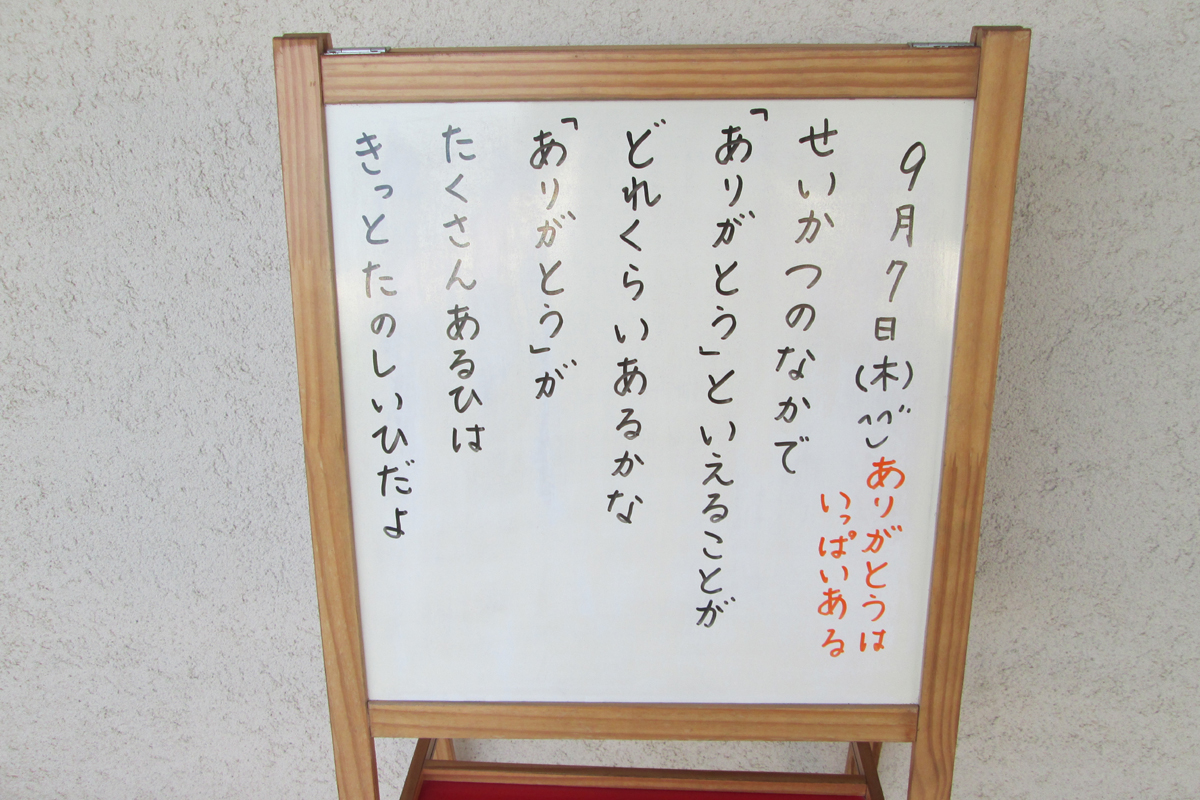 9月7日(木)
ありがとうは
いっぱいある
せいかつのなかで
「ありがとう」といえることが
どれくらいあるかな
「ありがとう」が
たくさんあるひは
きっとたのしいひだよ